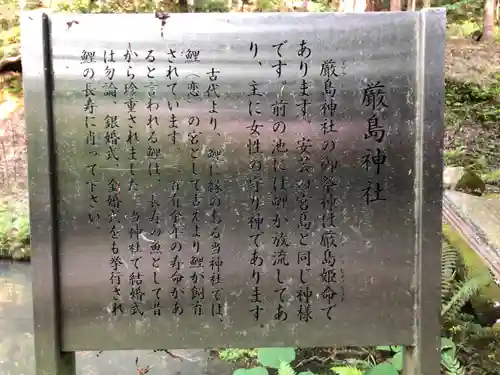 厳島神社
厳島神社の御祭神は厳島姫命で
あります。安芸の宮島と同じ神様
です。前の池には鯉が放流してあ
り、主に女性の守り神であります。
古代より、鯉に縁のある当神社では、
鯉(恋)の宮として古えより鯉が飼育
されています。百有余年の寿命があ
ると言われる鯉は、長寿の魚として昔
から珍重されました。当神社で結婚式
は勿論、銀婚式、金婚式をも挙行され
鯉の長寿に肖って下さい。